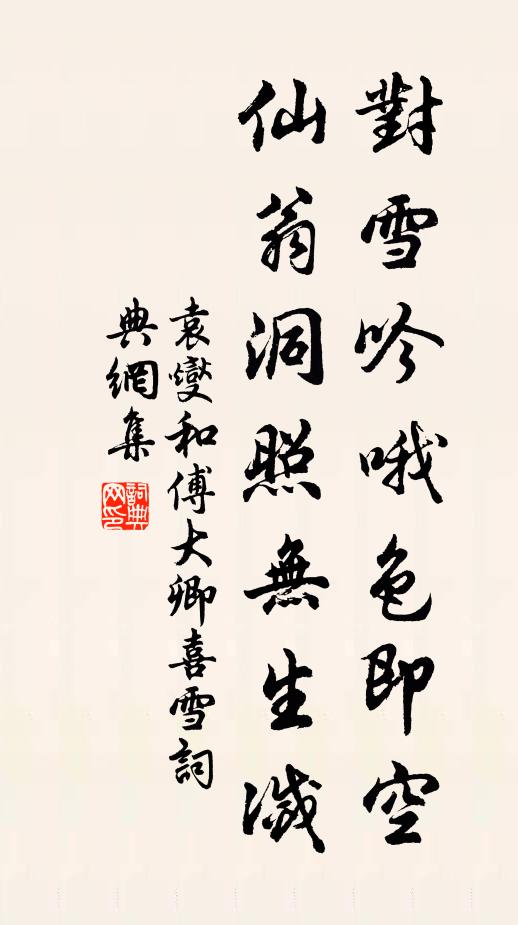 對雪吟哦色即空
仙翁洞照無生滅
袁燮和傅大卿喜雪詞
典網集
詞典網印